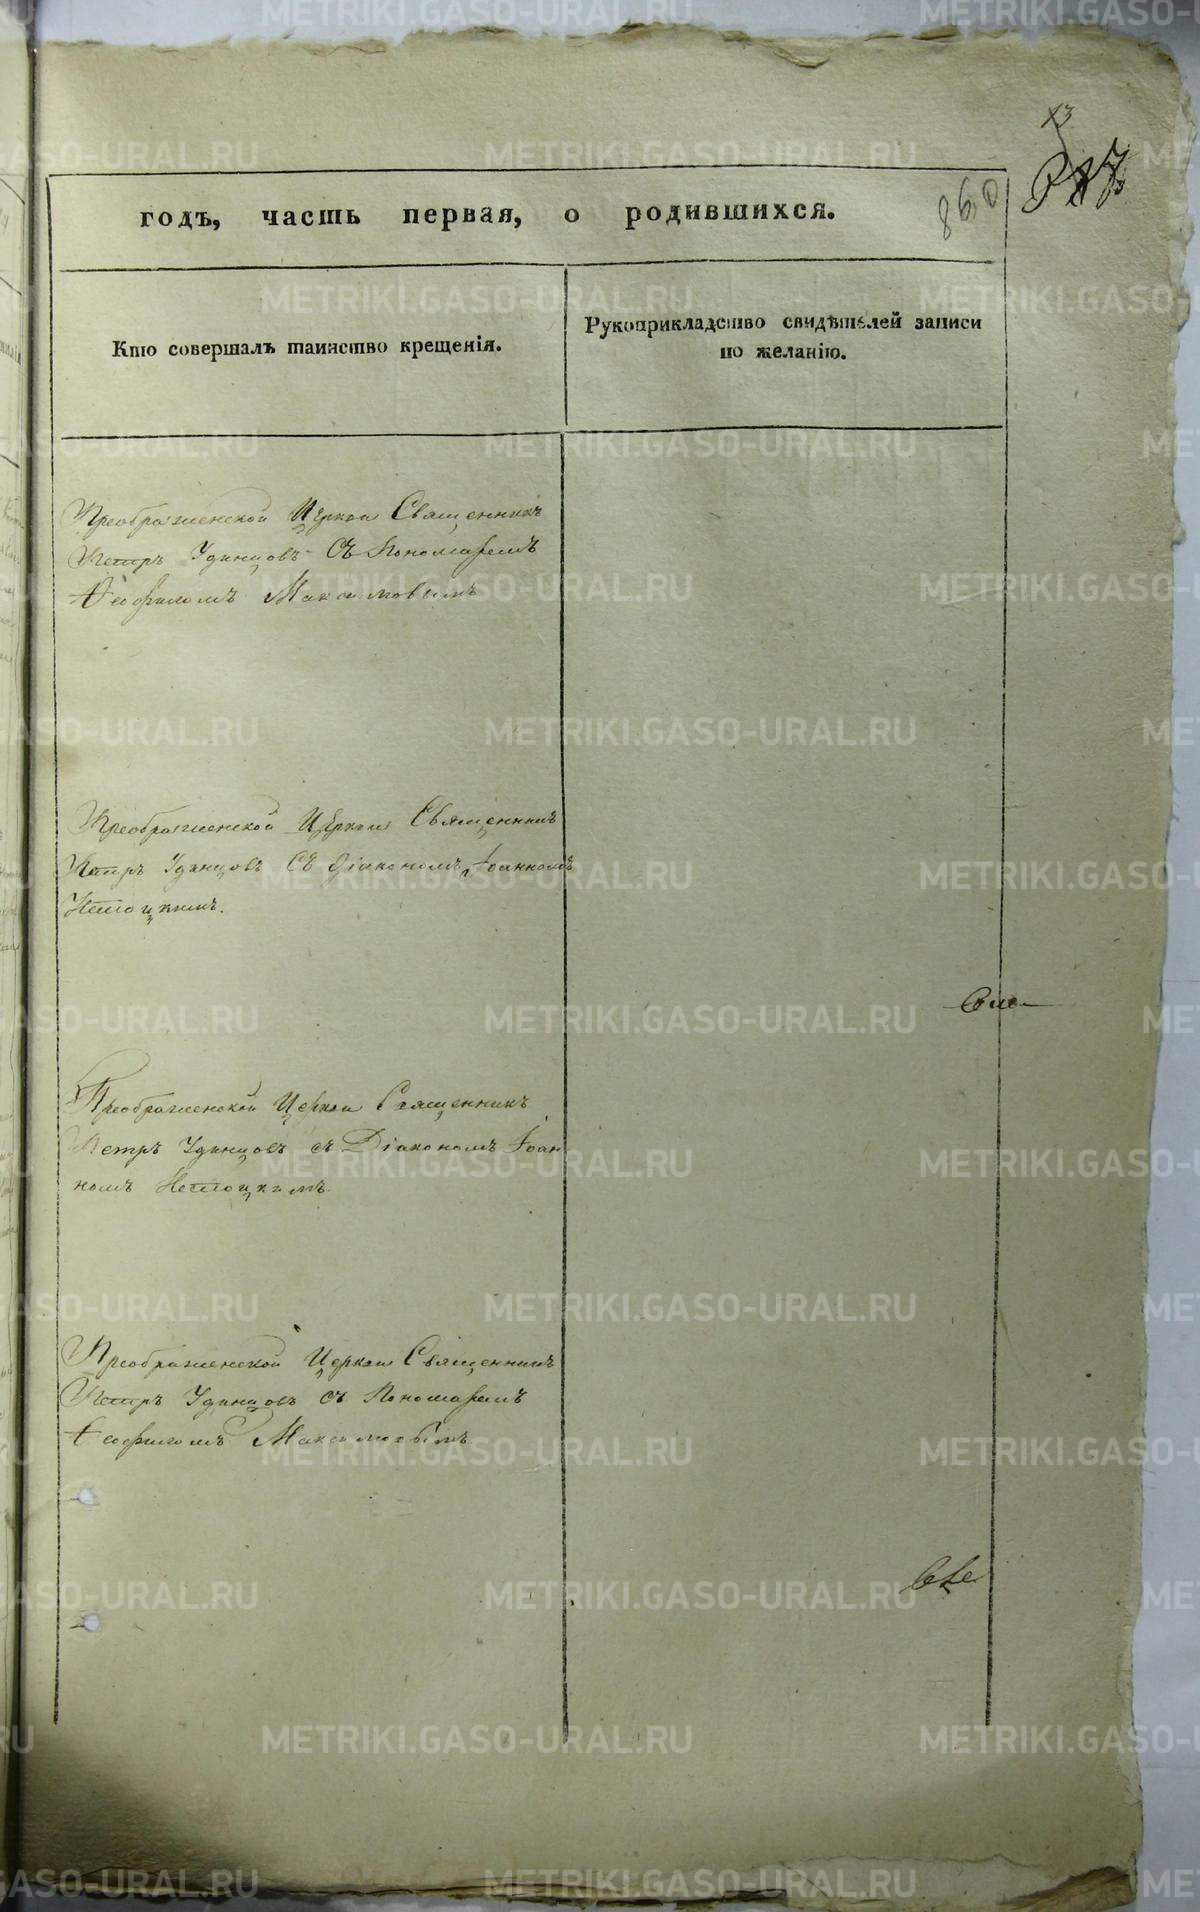 13
860
годъ, часть первая, о родившихся.
Кто совершалъ таинство крещенія.
Рукоприкладство свидѣтелей записи
по желанію.
Преображенской Церкви Священникъ
Петръ Удинцовъ съ Пономаремъ
Ѳеофиломъ Максимовымъ
Преображенской Церкви Священникъ
Петръ Удинцовъ съ Діакономъ Іоанномъ
Нетоцкимъ.
Преображенской Церкви Священникъ
Петръ Удинцовъ съ Діакономъ Іоан
номъ Нетоцкимъ.
Преображенской Церкви Священникъ
Петръ Удинцовъ съ Пономаремъ
Ѳеофиломъ Максимовымъ
METRIKI.GASO-URAL.RU